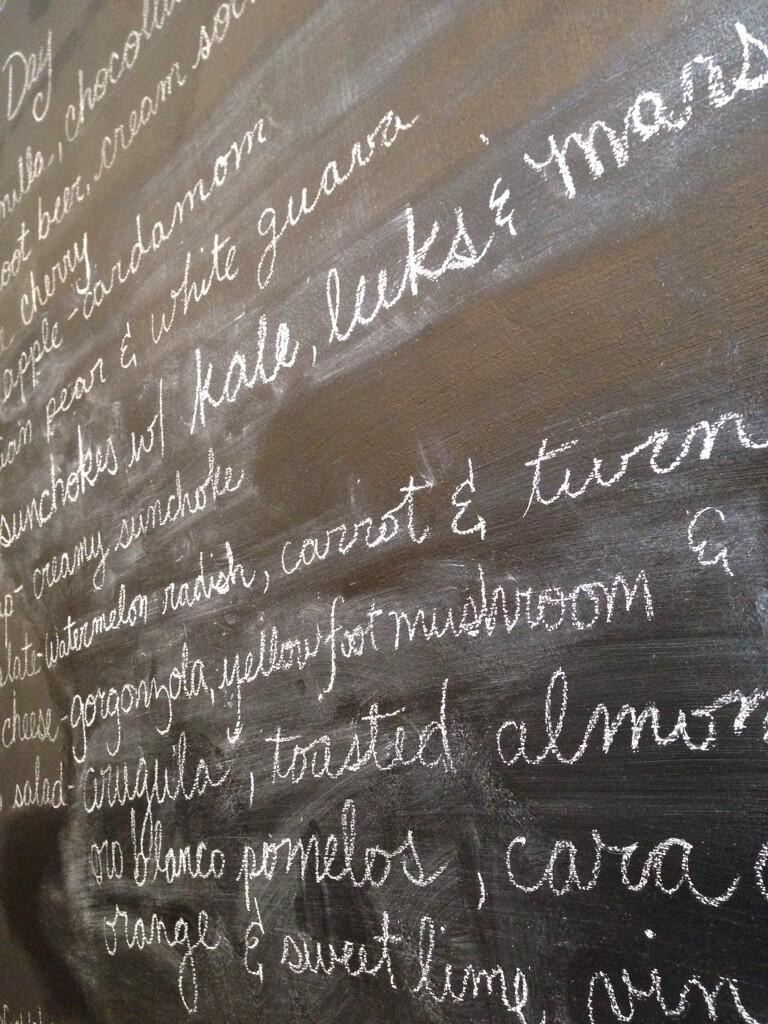 Day
nilla, chocolla
oot beer, cream so
cherry
apple-cardamom
ian pear & white guava
sunchokes w/ kale, leeks & mars
- creamy sunchoke
late-watermelon radish, carrot & turn
cheese-gorgonzola, yellowfoot mushroom &
salad-arugula, toasted almon
oro blanco pomelos, cara
orange & sweet lime vin